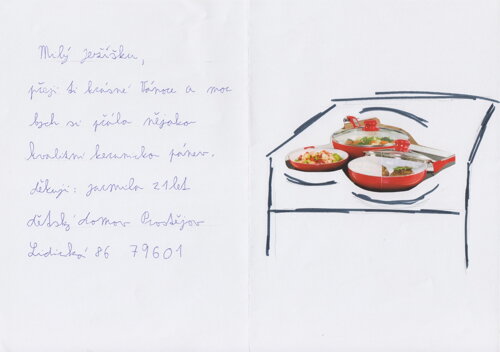 Milý Ježíšku,
přeji ti krásné Vánoce a moc
bych si přála nějako
kvalitni keramicka pánev.
děkuji: jarmila 21 let
dětský domov Prostějov
Lidická 86 79601